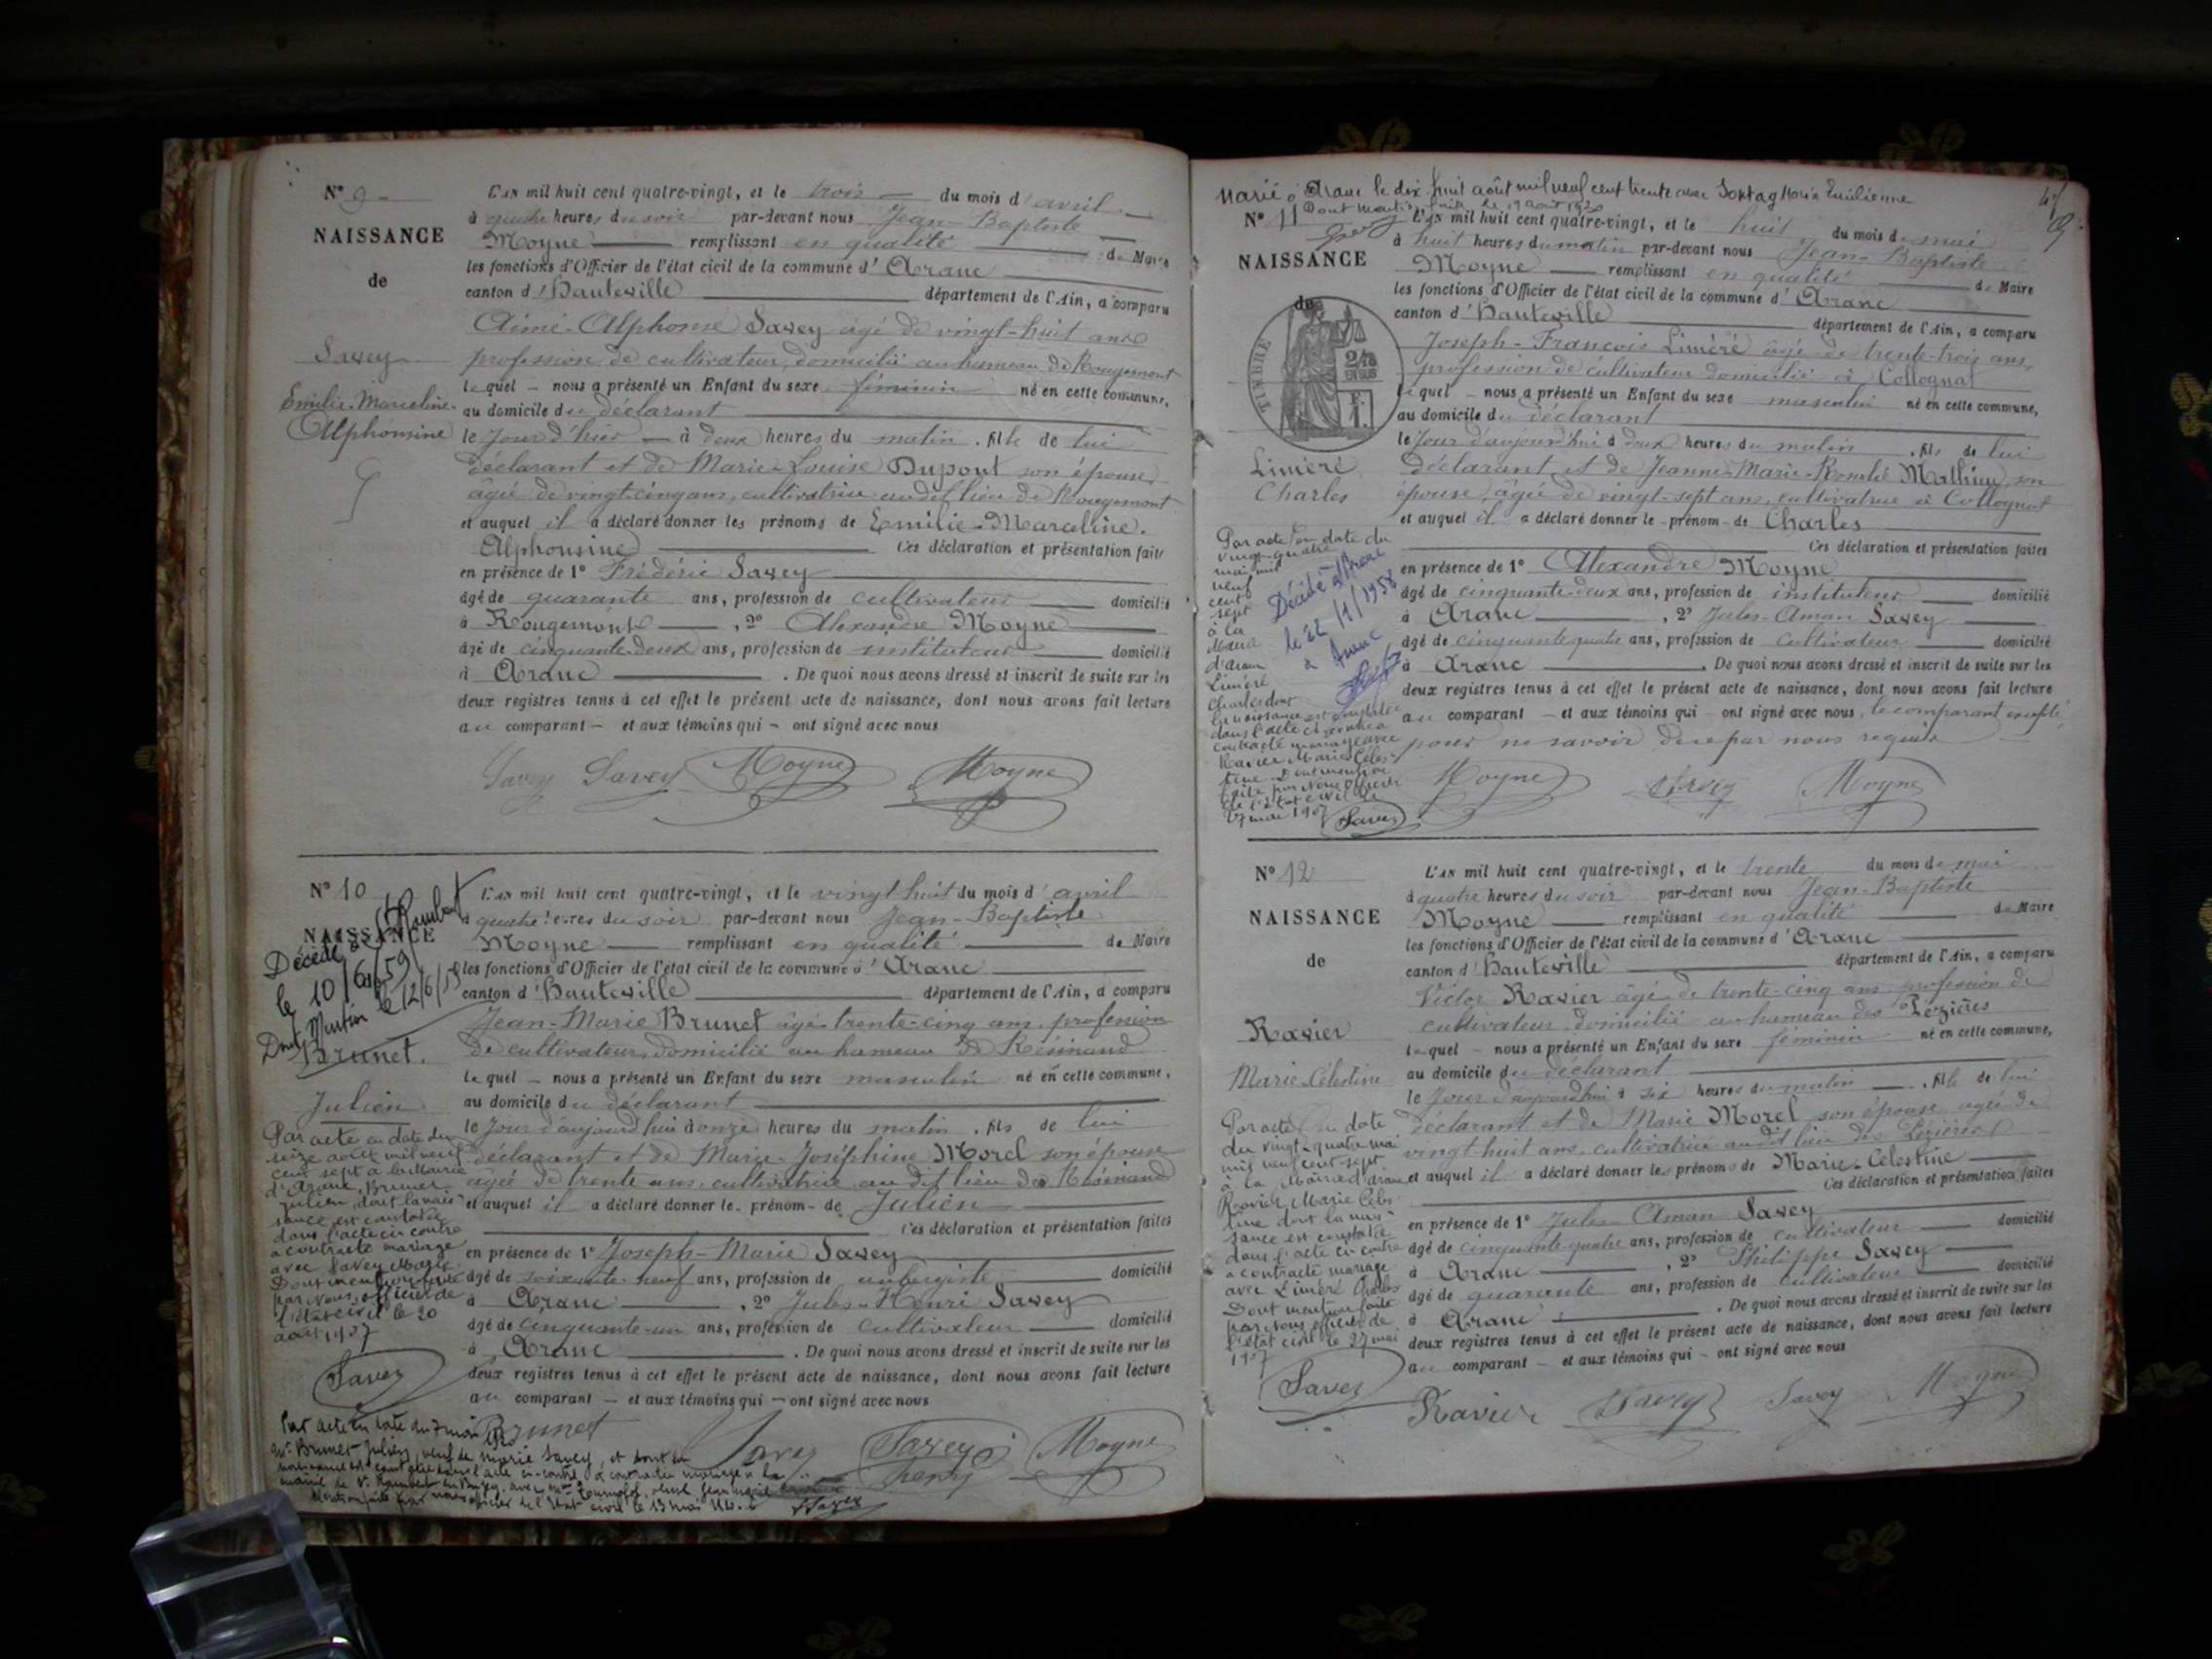 N° 9
NAISSANCE
de
Savey
Emilie-Marceline-
Alphonsine
L'AN mil huit cent quatre-vingt, et le trois du mois d'avril
à quatre heures du soir par-devant nous Jean-Baptiste
Moyne remplissant en qualité de Maire
les fonctions d'Officier de l'état civil de la commune d'Aranc
canton d'Hauteville département de l'Ain, a comparu
Aimé-Alphonse Savey âgé de vingt-huit ans
profession de cultivateur, domicilié au hameau de Rougemont
lequel nous a présenté un Enfant du sexe féminin né en cette commune,
au domicile du déclarant
le jour d'hier à deux heures du matin, fille de lui
déclarant et de Marie-Louise Dupont son épouse
âgée de vingt-cinq ans, cultivatrice audit lieu de Rougemont
et auquel il a déclaré donner les prénoms de Emilie-Marceline-
Alphonsine Ces déclaration et présentation faites
en présence de 1° Frédéric Savey
âgé de quarante ans, profession de cultivateur domicilié
à Rougemont, 2° Alexandre Moyne
âgé de cinquante-deux ans, profession de instituteur domicilié
à Aranc. De quoi nous avons dressé et inscrit de suite sur les
deux registres tenus à cet effet le présent acte de naissance, dont nous avons fait lecture
au comparant et aux témoins qui ont signé avec nous
Savey Savey Moyne Moyne
N° 10
NAISSANCE
Décédé à St Rambert
le 10/6/59
Dont Mention le 12/6/59
Brunet.
Julien
Par acte en date du
seize août mil neuf
cent sept à la Mairie
d'Aranc, Brunet
Julien, dont la nais-
sance est constatée
dans l'acte ci contre
a contracté mariage
avec Savey Marie
Dont mention faite
par Nous, officier de
l'état civil le 20
août 1907
Savey
L'AN mil huit cent quatre-vingt, et le vingt-huit du mois d'avril
à quatre heures du soir par-devant nous Jean-Baptiste
Moyne remplissant en qualité de Maire
les fonctions d'Officier de l'état civil de la commune d'Aranc
canton d'Hauteville département de l'Ain, a comparu
Jean-Marie Brunet âgé trente-cinq ans, profession
de cultivateur, domicilié au hameau de Résinand
lequel nous a présenté un Enfant du sexe masculin né en cette commune,
au domicile du déclarant
le jour d'aujourd'hui à onze heures du matin, fils de lui
déclarant et de Marie-Joséphine Morel son épouse
âgée de trente ans, cultivatrice au dit lieu de Résinand
et auquel il a déclaré donner le prénom de Julien
Ces déclaration et présentation faites
en présence de 1° Joseph-Marie Savey
âgé de soixante-neuf ans, profession de aubergiste domicilié
à Aranc, 2° Jules-Henri Savey
âgé de cinquante-un ans, profession de cultivateur domicilié
à Aranc. De quoi nous avons dressé et inscrit de suite sur les
deux registres tenus à cet effet le présent acte de naissance, dont nous avons fait lecture
au comparant et aux témoins qui ont signé avec nous
Brunet Savey Savey Henri Moyne
Par acte en date du 7 mai
Mr Brunet Julien, veuf de Marie Savey, et dont la
naissance est constatée dans l'acte ci-contre a contracté mariage à la
mairie de St Rambert en Bugey, avec Mme
Mention faite par nous officier de l'état civil le 13 mai
Savey
Marié à Aranc le dix huit août mil neuf cent trente avec Sontag Maria Emilienne
Dont mention faite le 19 août 1930
N° 11
NAISSANCE
de
TIMBRE
2/10
EN SUS
Liméré
Charles
Par acte en date du
vingt-quatre
mai mil
neuf
cent
sept
à la
Mairie
d'Aranc
Liméré
Charles dont
la naissance est constatée
dans l'acte ci contre a
contracté mariage avec
Ravier Marie Céles-
tine Dont mention
faite par Nous officier
de l'état civil le
27 mai 1907
Savey
Décédé à Aranc
le 22/11/1958
à Aranc
L'AN mil huit cent quatre-vingt, et le huit du mois de mai
à huit heures du matin par-devant nous Jean-Baptiste
Moyne remplissant en qualité de Maire
les fonctions d'Officier de l'état civil de la commune d'Aranc
canton d'Hauteville département de l'Ain, a comparu
Joseph-François Liméré âgé de trente-trois ans,
profession de cultivateur domicilié à Collognat
lequel nous a présenté un Enfant du sexe masculin né en cette commune,
au domicile du déclarant
le jour d'aujourd'hui à deux heures du matin, fils de lui
déclarant et de Jeanne-Marie-Romélie Mathieu, son
épouse, âgée de vingt-sept ans, cultivatrice à Collognat
et auquel il a déclaré donner le prénom de Charles
Ces déclaration et présentation faites
en présence de 1° Alexandre Moyne
âgé de cinquante-deux ans, profession de instituteur domicilié
à Aranc, 2° Jules-Aman Savey
âgé de cinquante-quatre ans, profession de cultivateur domicilié
à Aranc. De quoi nous avons dressé et inscrit de suite sur les
deux registres tenus à cet effet le présent acte de naissance, dont nous avons fait lecture
au comparant et aux témoins qui ont signé avec nous, le comparant excepté,
pour ne savoir de ce par nous requis
Moyne Savey Moyne
N° 12
NAISSANCE
de
Ravier
Marie-Célestine
Par acte en date
du vingt-quatre mai
mil neuf cent sept
à la Mairie d'Aranc
Ravier Marie Céles-
tine dont la nais-
sance est constatée
dans l'acte ci contre
a contracté mariage
avec Liméré Charles
Dont mention faite
par nous officier de
l'état civil le 27 mai
1907
Savey
L'AN mil huit cent quatre-vingt, et le trente du mois de mai
à quatre heures du soir par-devant nous Jean-Baptiste
Moyne remplissant en qualité de Maire
les fonctions d'Officier de l'état civil de la commune d'Aranc
canton d'Hauteville département de l'Ain, a comparu
Victor Ravier âgé de trente-cinq ans profession de
cultivateur, domicilié au hameau des Pézières
lequel nous a présenté un Enfant du sexe féminin né en cette commune,
au domicile du déclarant
le jour d'aujourd'hui à six heures du matin, fille de lui
déclarant et de Marie Morel son épouse âgée de
vingt-huit ans, cultivatrice audit lieu des Pézières
et auquel il a déclaré donner les prénoms de Marie-Célestine
Ces déclaration et présentation faites
en présence de 1° Jules Aman Savey
âgé de cinquante-quatre ans, profession de cultivateur domicilié
à Aranc, 2° Philippe Savey
âgé de quarante ans, profession de cultivateur domicilié
à Aranc. De quoi nous avons dressé et inscrit de suite sur les
deux registres tenus à cet effet le présent acte de naissance, dont nous avons fait lecture
au comparant et aux témoins qui ont signé avec nous
Ravier Savey Savey Moyne